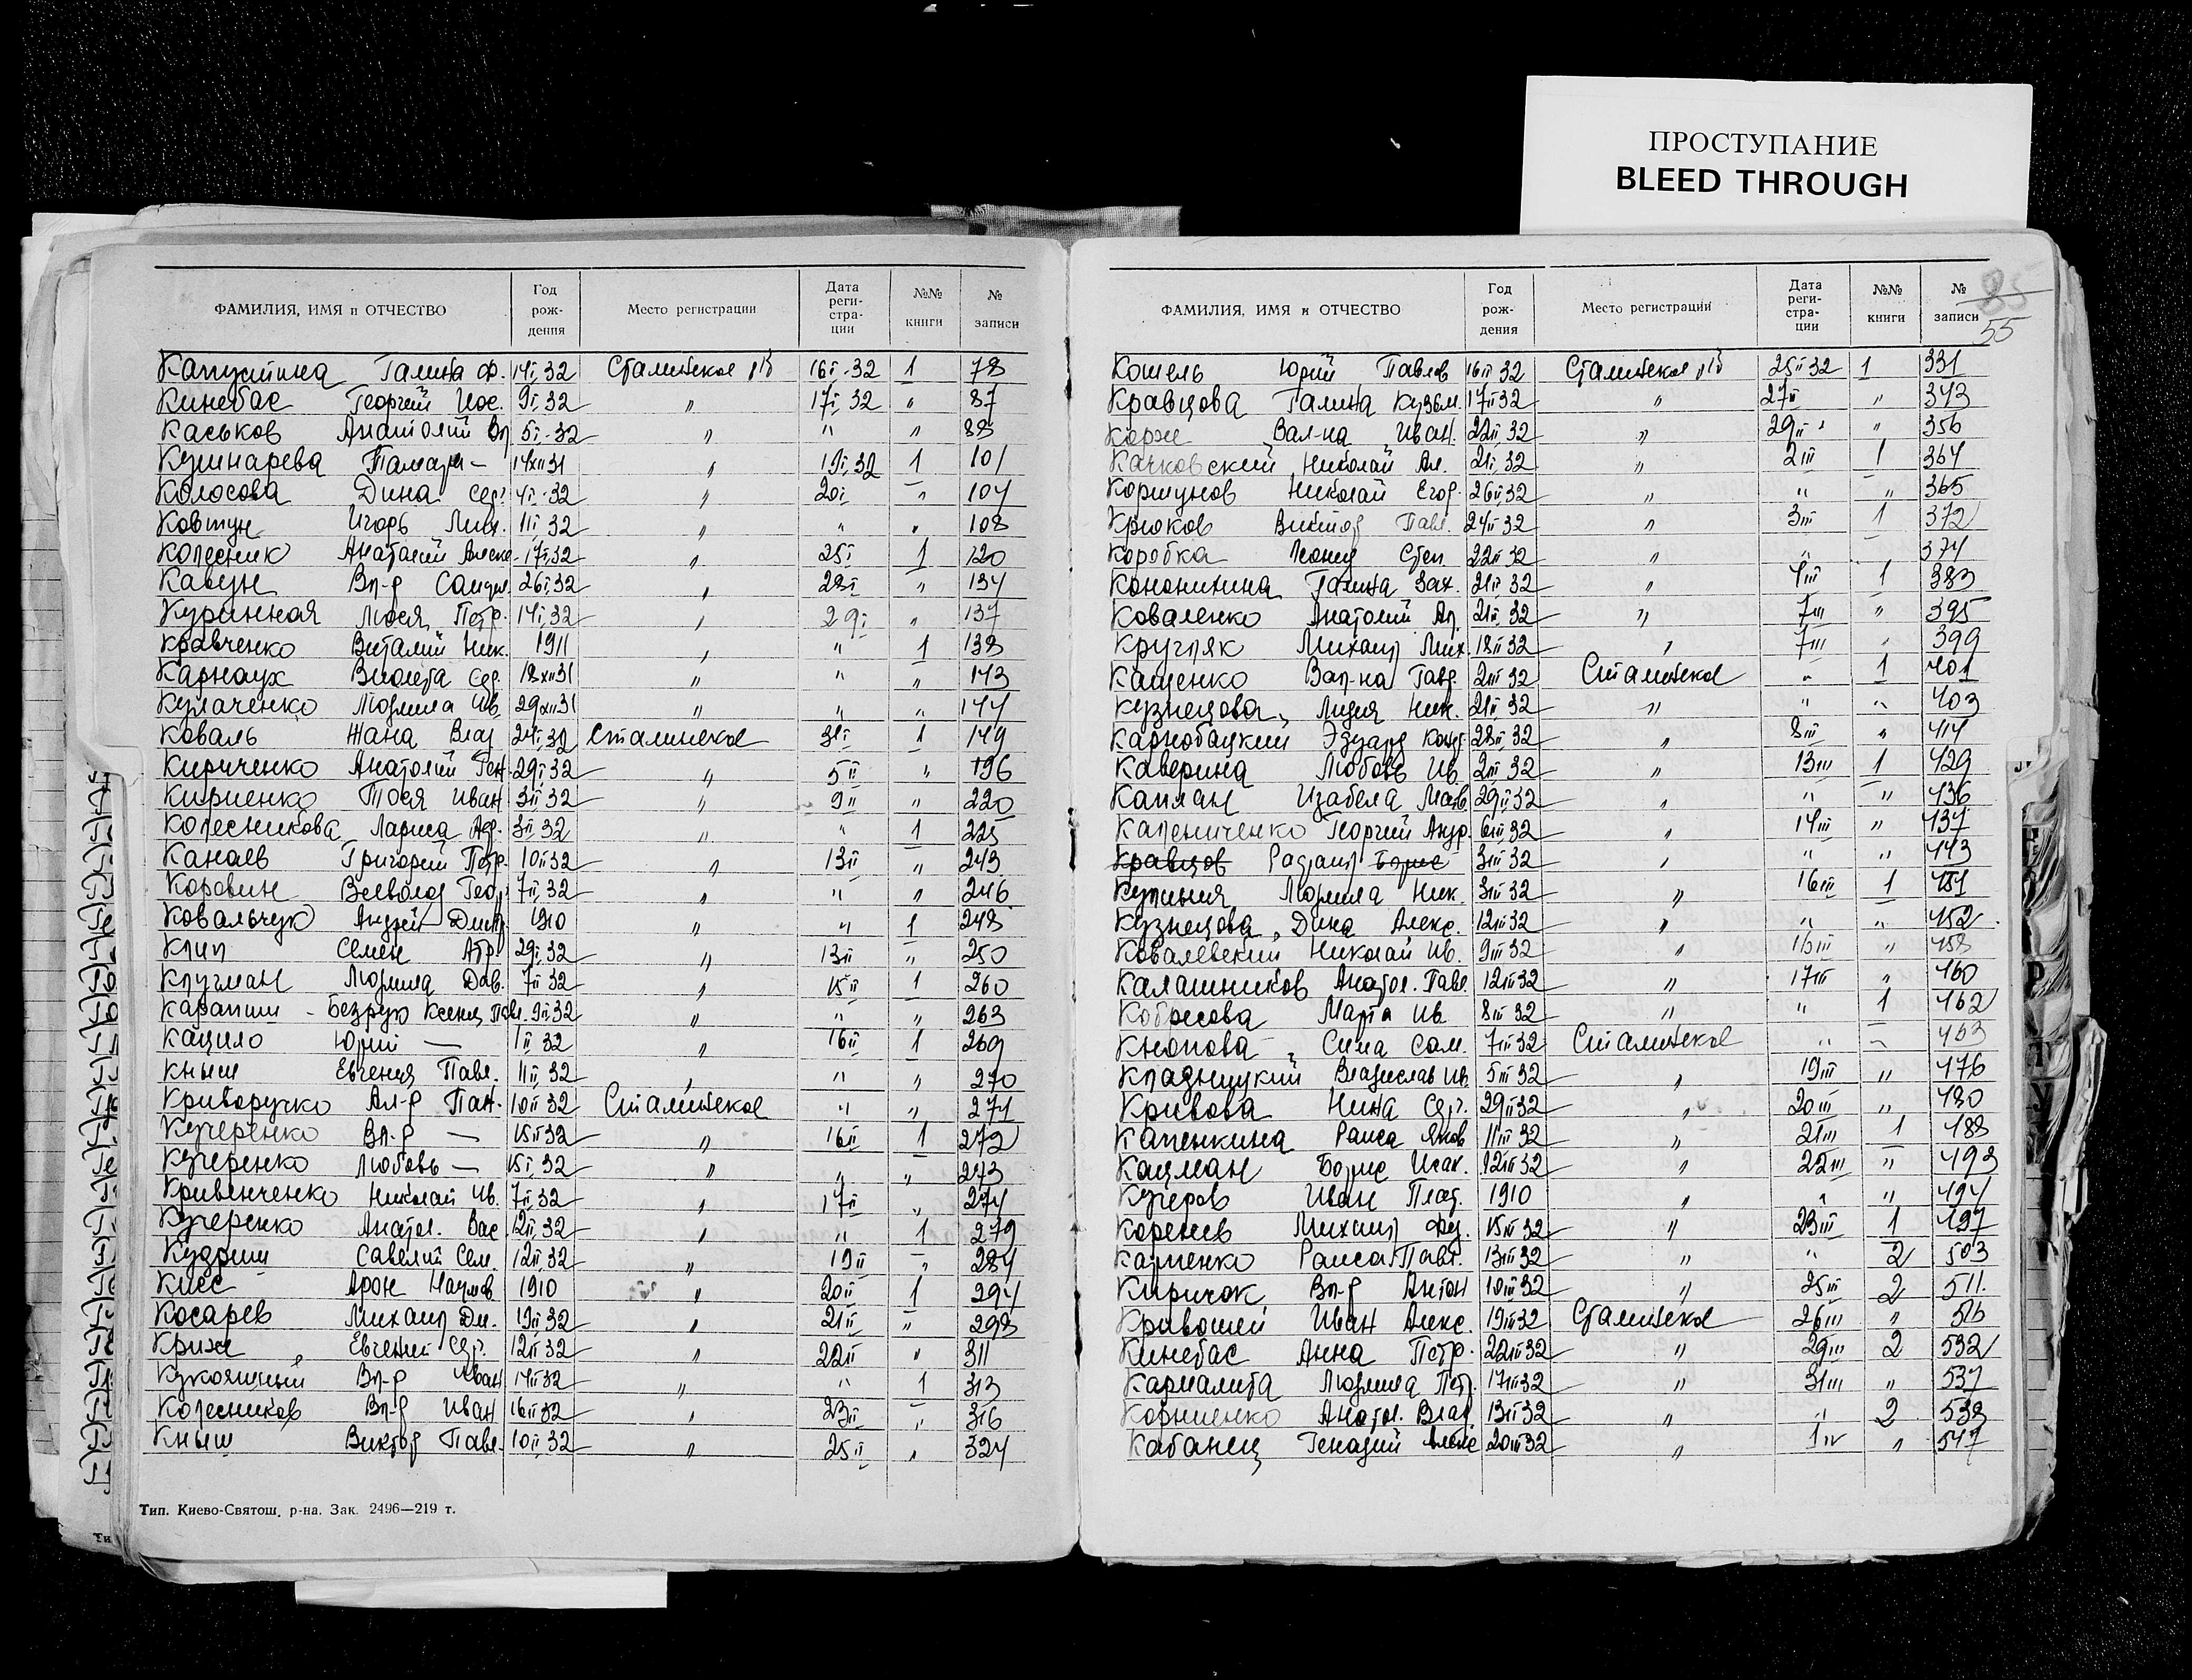 ПРОСТУПАНИЕ
BLEED THROUGH
ФАМИЛИЯ, ИМЯ и ОТЧЕСТВО Год рождения Место регистрации Дата регистрации №№ книги № записи
Капустина Галина Ф. 14I,32 Сталинское 16I-32 1 78
Кинебас Георгий Иос. 9I,32 " 17I,32 " 87
Каськов Анатолий Вл 5I-32 " " " 88
Кушнарева Тамара — 14XII31 " 19I,32 1 101
Колосова Дина Сер. 4I-32 " 20I " 104
Ковтун Игорь 11I,32 " " " 108
Колесник Анатолий Алекс 17I,32 " 25I 1 120
Кавун Вл-р 26I,32 " 28I " 134
Куринная Люся Петр. 14I,32 " 29I " 137
Кравченко Виталий Ник. 1911 " " 1 138
Карнаух Виолета Сер. 18XII31 " " " 143
Кулаченко Людмила Ив. 29XII31 " " " 144
Коваль Жана Влад 24I,32 Сталинское 31I 1 149
Кириченко Анатолий Ген. 29I32 " 5II " 196
Кириенко Тося Иван 3II32 " 9II " 220
Колесникова Лариса 3II,32 " " 1 225
Канаев Григорий Петр. 10II32 " 13II " 243
Коровин Всеволод Геор. 7II,32 " " " 246
Ковальчук Андрей Дмитр 1910 " " 1 248
Клип Семен Абр. 29I,32 " 13II " 250
Клугман Людмила Дав. 7II32 " 15II 1 260
Карапиш - Безрук Ксения Павл. 9II,32 " " " 263
Кацило Юрий — 1II32 " 16II 1 269
Кныш Евгения Павл. 11II,32 " " " 270
Криворучко Ал-р Пан. 10II32 Сталинское " " 271
Кучеренко Вл-р — 15II32 " 16II 1 272
Кучеренко Любовь — 15I,32 " " " 273
Кривенченко Николай Ив. 7II,32 " 17II " 274
Кучеренко Анатол. Вас 12II,32 " " 1 279
Кудриш Савелий Сем. 12II,32 " 19II " 284
Кисс Арон Наумов 1910 " 20II 1 294
Косарев Михаил Дм. 19II32 " 21II " 298
Криж Евгений Сер. 12II32 " 22II " 311
Вл-р Иван 14II32 " " 1 313
Колесников Вл-р Иван 16II32 " 23II " 316
Кныш Виктор Павл. 10II,32 " 25II " 324
Тип. Киево-Святош. р-на. Зак. 2496—219 т.
ФАМИЛИЯ, ИМЯ и ОТЧЕСТВО Год рождения Место регистрации Дата регистрации №№ книги № записи
55
Кошель Юрий Павлов 16II32 Сталинское 25II32 1 331
Кравцова Галина Кузьм. 17II32 " 27II " 343
Корж Вал-на Иван. 22II,32 " 29II " 356
Качковский Николай Ал. 21I,32 " 2III 1 364
Коршунов Николай Егор. 26II32 " " " 365
Крюков Виктор Павл. 24II32 " 3III 1 372
Коробка Леонид Степ. 22II32 " " 374
Кононихина Галина Зах. 21II,32 " 4III 1 383
Коваленко Анатолий Ал. 21II,32 " 7III " 395
Кругляк Михаил Мих 18II32 " 7III " 399
Кащенко Вал-на Гавр. 2III32 Сталинское " 1 401
Кузнецова Лидия Ник. 21II,32 " " " 403
Карнобацкий Эдуард Конд. 28II,32 " 8III " 414
Каверина Любовь Ив. 2III32 " 13III 1 429
Каплан Изабела Матв. 29II32 " " " 436
Калениченко Георгий Андр. 6III,32 " 14III " 437
Кравцов Радтант Борис 3III32 " " " 443
Людмила Ник. 3III32 " 16III 1 451
Кузнецова Дина Алекс. 12III32 " " " 452
Ковалевский Николай Ив. 9III32 " 16III " 458
Калашников Анатол. Павл. 12III32 " 17III " 460
Кобрисова Марта Ив. 8III32 " " 1 462
Кнопова Сима Сам. 7III32 Сталинское " " 463
Кладницкий Владислав Ив. 5III32 " 19III " 476
Кривова Нина Сер. 29II32 " 20III " 480
Капенкина Раиса Яков 11III32 " 21III 1 488
Кацман Борис Исак. 12III32 " 22III " 493
Кучеров Иван Плат. 1910 " " " 494
Коренев Михаил Фед. 15III32 " 23III 1 497
Карпенко Раиса Павл. 13III32 " " 2 503
Киричок Вл-р Антон 10III32 " 25III 2 511
Кривошей Иван Алекс. 19III32 Сталинское 26III " 516
Кинебас Анна Петр. 22III32 " 29III 2 532
Кармалита Людмила Петр. 17III32 " 31III " 537
Корниенко Анатол. Влад. 13III32 " " 2 538
Кабанец Генадий Алекс 20III32 " 1IV " 547